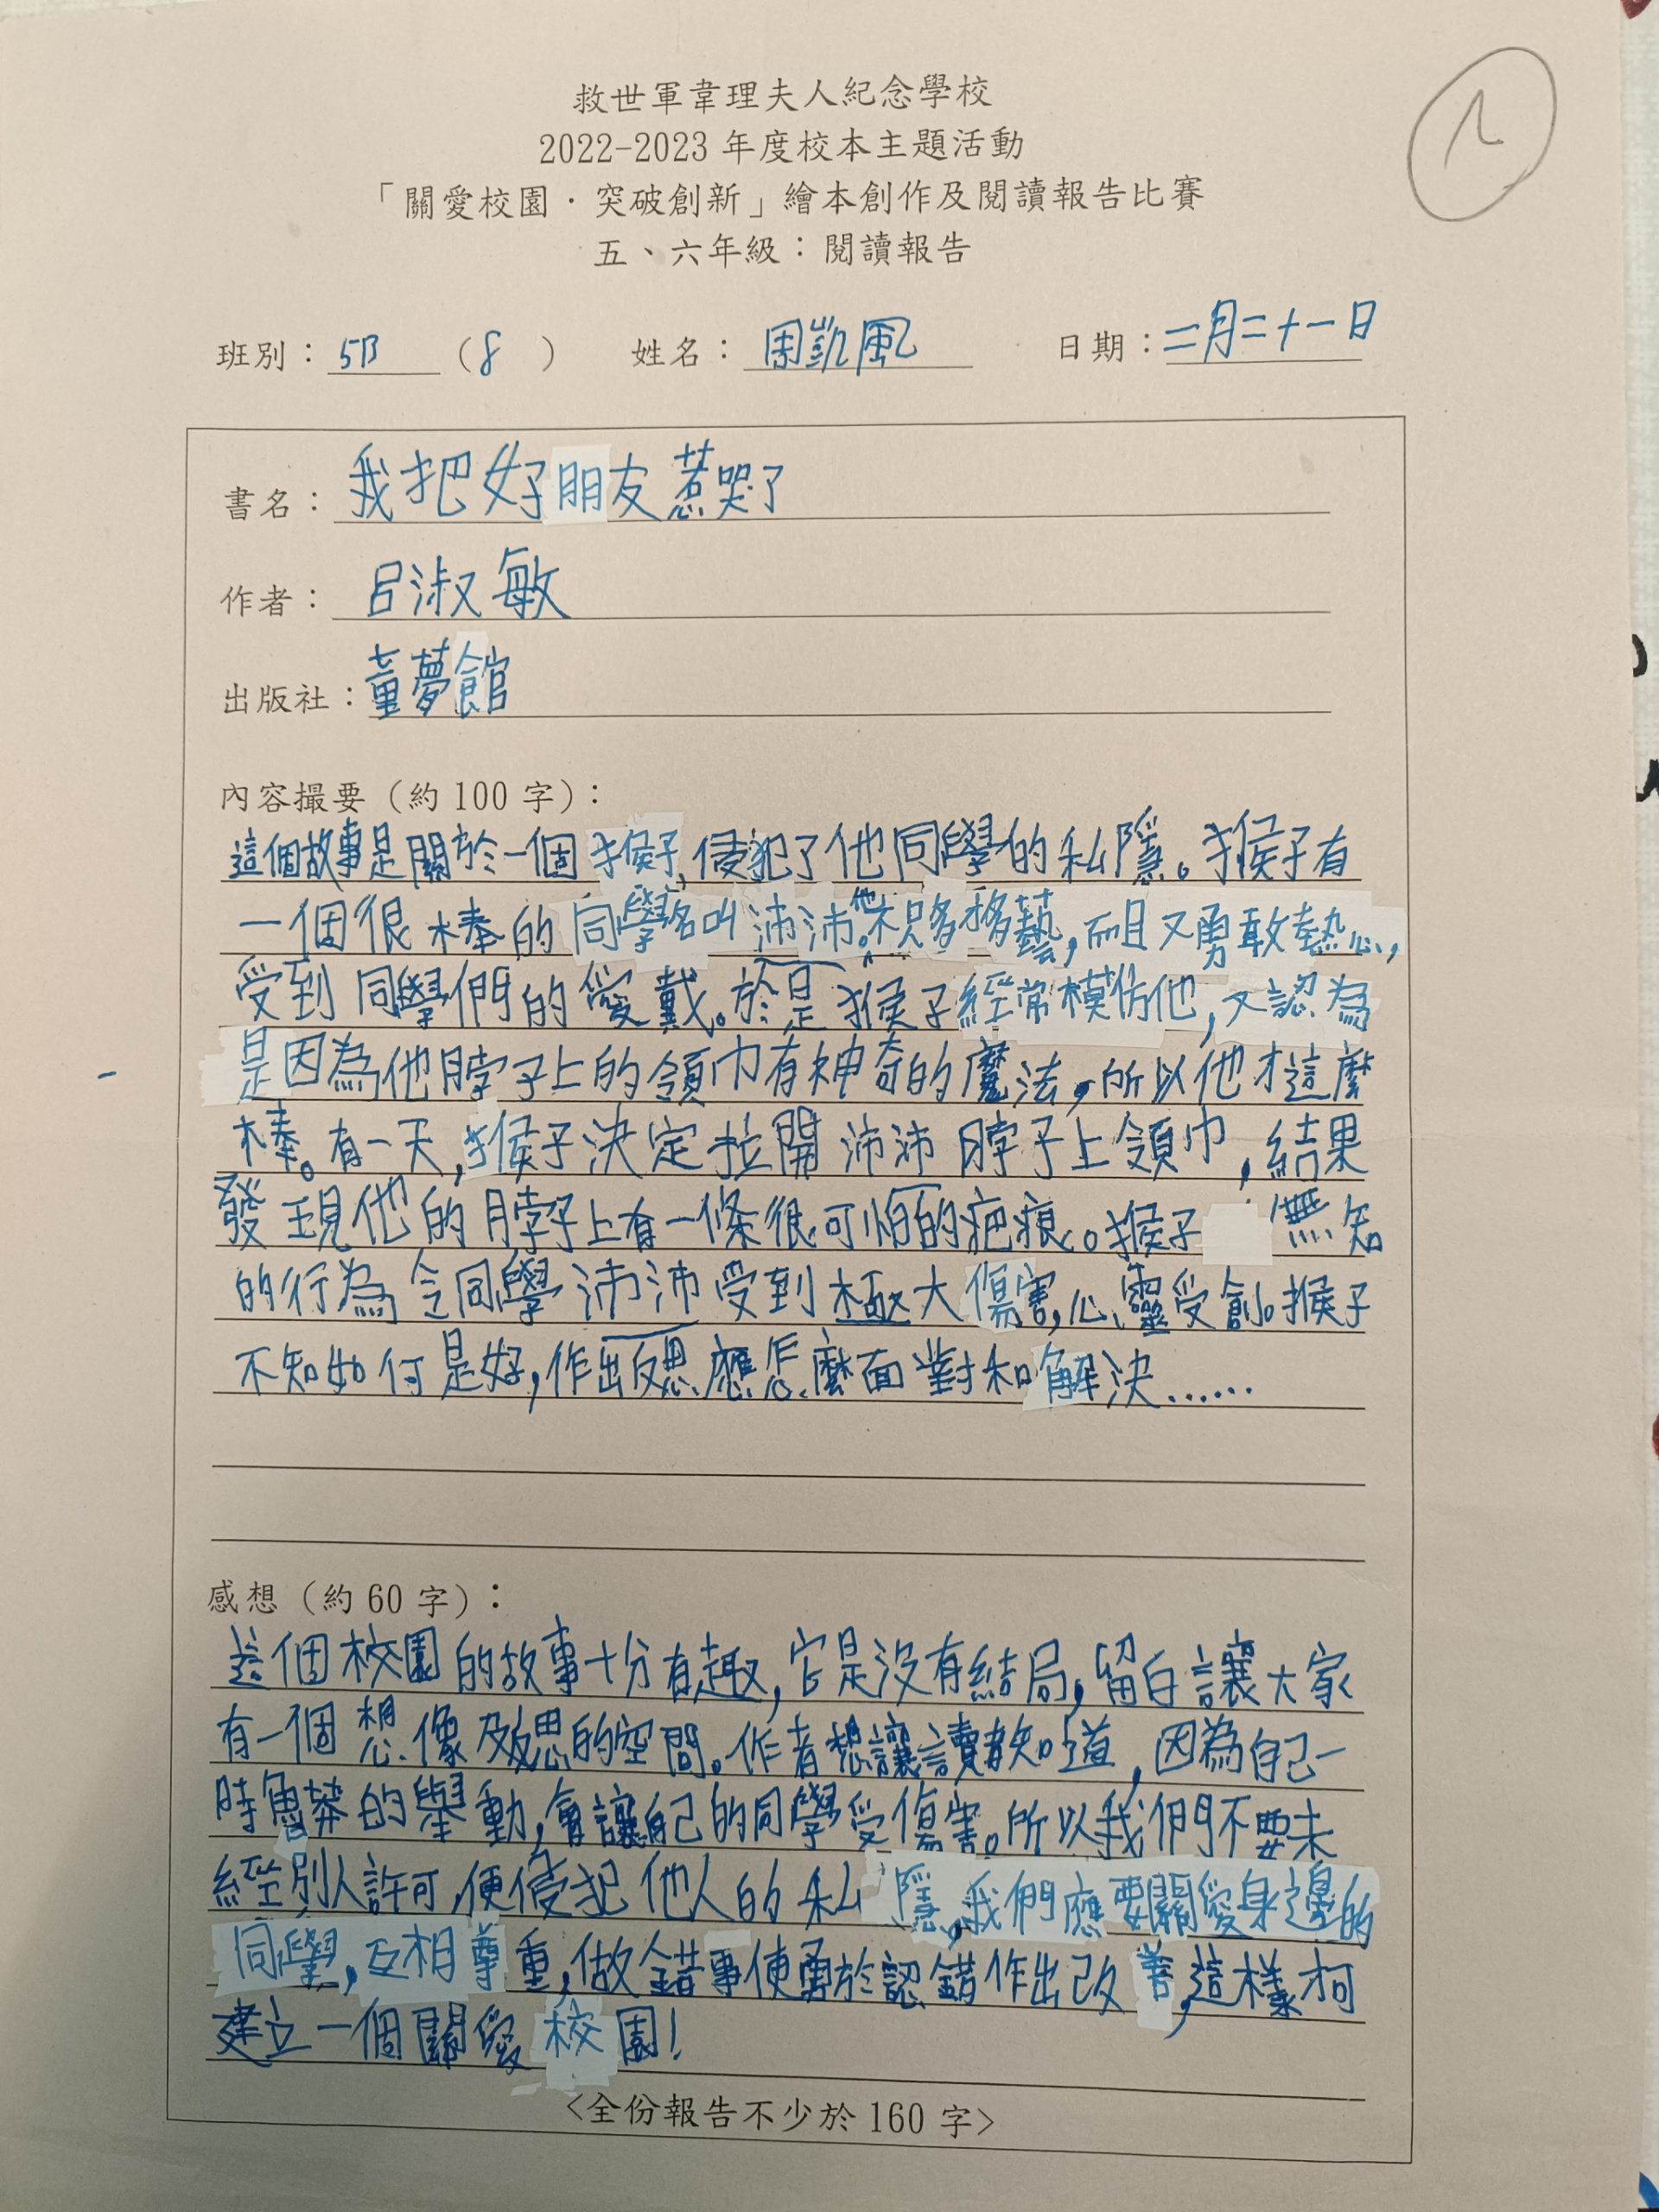 救世軍韋理夫人紀念學校
2022-2023 年度校本主題活動
「關愛校園．突破創新」繪本創作及閱讀報告比賽
五、六年級：閱讀報告
班別：5B （8 ） 姓名：周凱風 日期：二月二十一日
書名：我把好朋友惹哭了
作者：呂淑敏
出版社：童夢館
內容撮要（約 100 字）：
這個故事是關於一個猴子,侵犯了他同學的私隱。猴子有
一個很棒的同學名叫沛沛。他不只多才多藝,而且又勇敢熱心,
受到同學們的愛戴。於是猴子經常模仿他,又認為
是因為他脖子上的領巾有神奇的魔法,所以他才這麼
棒。有一天,猴子決定拉開沛沛脖子上領巾,結果
發現他的脖子上有一條很可怕的疤痕。猴子 無知
的行為令同學沛沛受到極大傷害,心靈受創。猴子
不知如何是好,作出反思應怎麼面對和解決……
感想（約 60 字）：
這個校園的故事十分有趣,它是沒有結局,留白讓大家
有一個想像及反思的空間。作者想讓讀者知道,因為自己一
時魯莽的舉動,會讓自己的同學受傷害。所以我們不要未
經別人許可,便侵犯他人的私隱,我們應要關愛身邊的
同學,互相尊重,做錯事便勇於認錯作出改善,這樣才可
建立一個關愛校園!
<全份報告不少於 160 字>